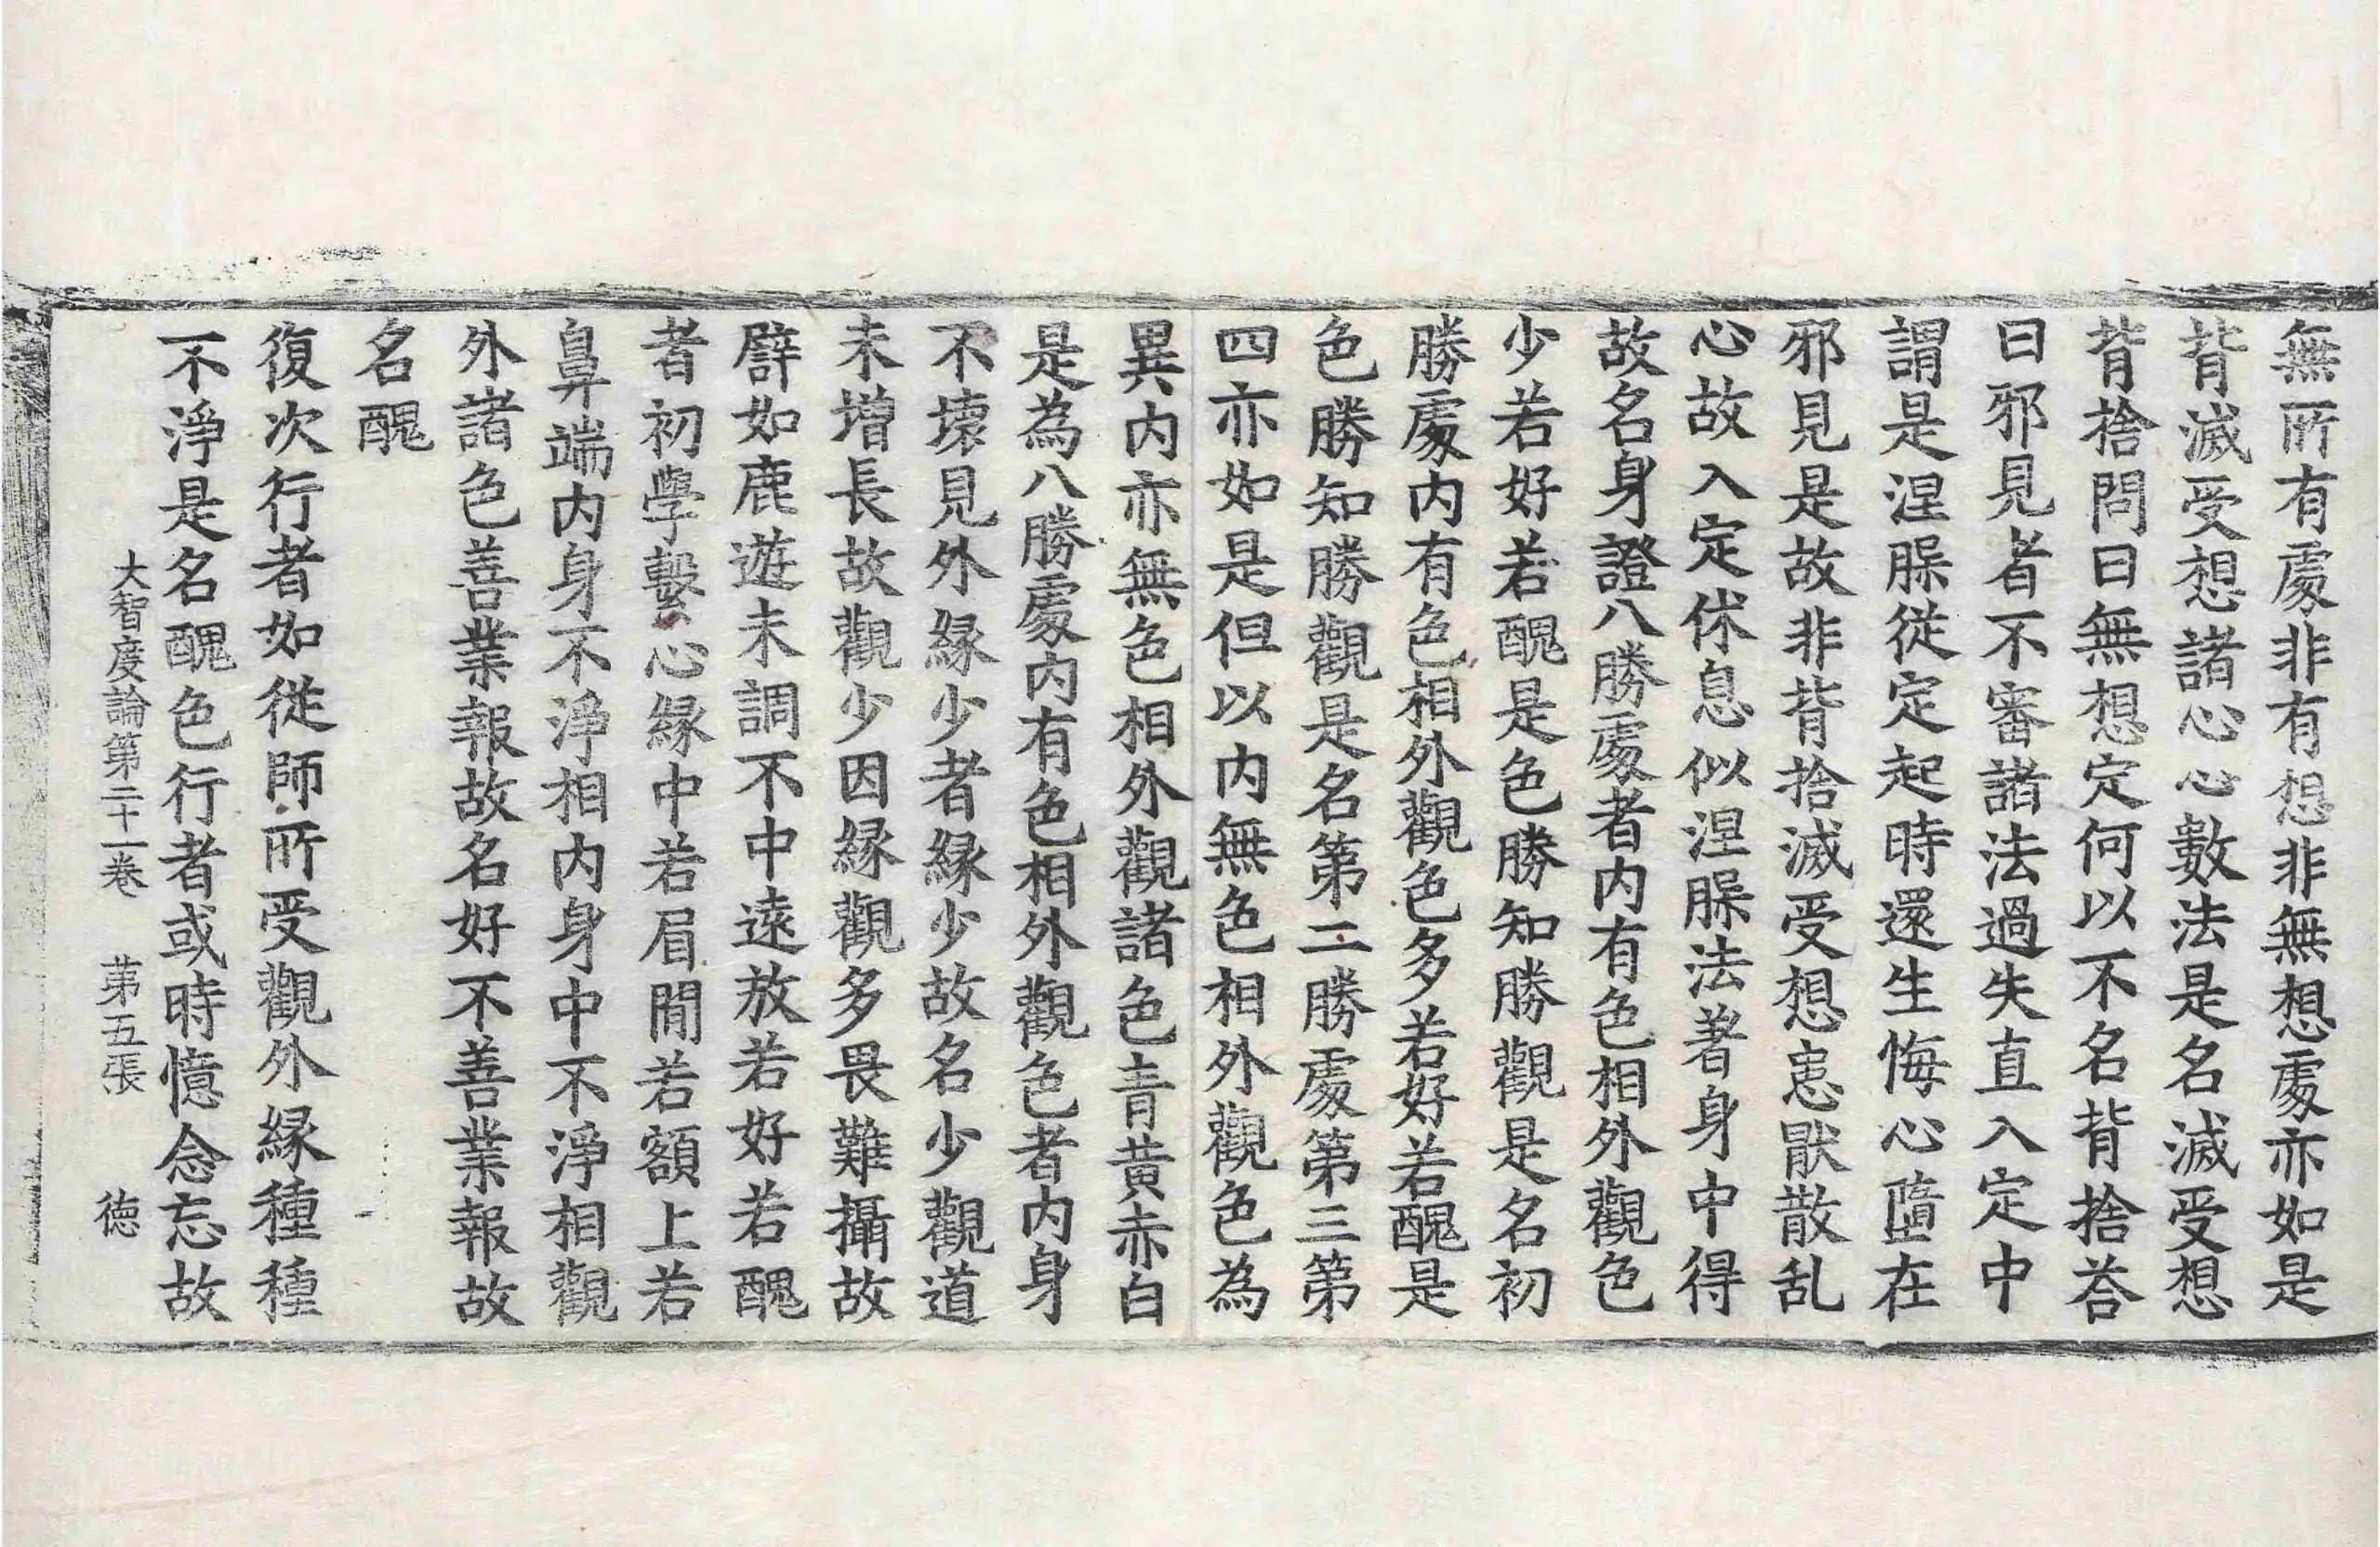 無所有處非有想非無想處亦如是
背滅受想諸心心數法是名滅受想
背捨問曰無想定何以不名背捨荅
曰邪見者不審諸法過失直入定中
謂是涅槃從定起時還生悔心墮在
邪見是故非背捨滅受想患猒散乱
心故入定休息似涅槃法著身中得
故名身證八勝處者内有色相外觀色
少若好若醜是色勝知勝觀是名初
勝處内有色相外觀色多若好若醜是
色勝知勝觀是名第二勝處第三第
四亦如是但以内無色相外觀色為
異内亦無色相外觀諸色青黃赤白
是為八勝處内有色相外觀色者内身
不壞見外緣少者緣少故名少觀道
未增長故觀少因緣觀多畏難攝故
譬如鹿遊未調不中遠放若好若醜
者初學繫心緣中若眉間若額上若
鼻端内身不淨相内身中不淨相觀
外諸色善業報故名好不善業報故
名醜
復次行者如從師所受觀外緣種種
不淨是名醜色行者或時憶念忘故
大智度論第二十一卷　第五張　徳